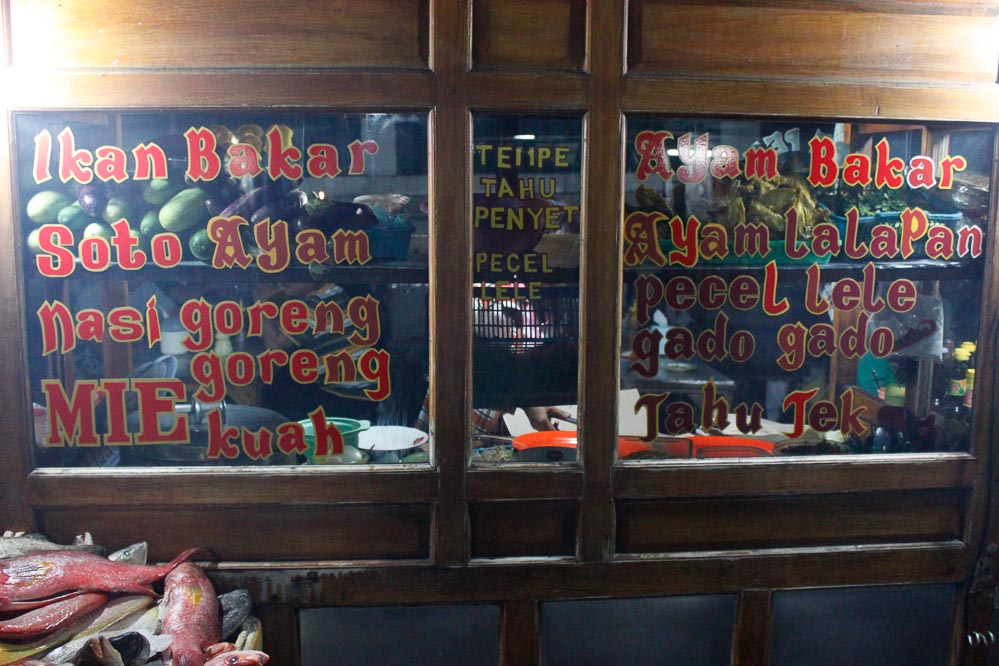 Ikan Bakar
Soto Ayam
Nasi goreng
MIE goreng
kuah
TEMPE
TAHU
PENYET
PECEL
LELE
Ayam Bakar
Ayam lalapan
pecel lele
gado gado
Tahu Tek